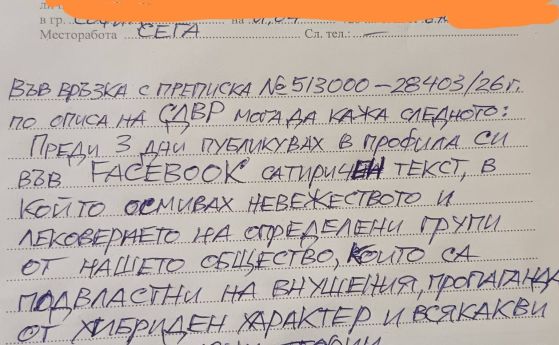 в гр. СОФИЯ на 01.04
Месторабота СЕГА Сл. тел.: —
ВЪВ ВРЪЗКА С ПРЕПИСКА № 513000-28403/26 г.
ПО ОПИСА НА СДВР МОГА ДА КАЖА СЛЕДНОТО:
ПРЕДИ 3 ДНИ ПУБЛИКУВАХ В ПРОФИЛА СИ
ВЪВ FACEBOOK САТИРИЧЕН ТЕКСТ, В
КОЙТО ОСМИВАХ НЕВЕЖЕСТВОТО И
ЛЕКОВЕРАЕТО НА ОПРЕДЕЛЕНИ ГРУПИ
ОТ НАШЕТО ОБЩЕСТВО, КОИТО СА
ПОДВЛАСТНИ НА ВНУШЕНИЯ, ПРОПАГАНДА
ОТ ХИБРИДЕН ХАРАКТЕР И ВСЯКАКВИ